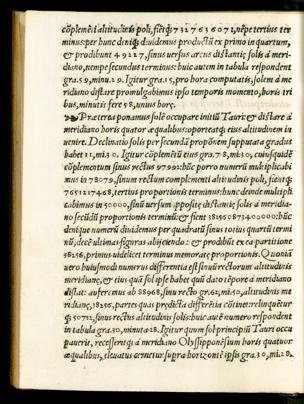 cõplemẽti altitudinis poli, fiẽtq́; 7 3 2 7 6 3 6 0 7 1, nẽpe tertius ter
minus: per hunc deniq́; diuidemus productũ ex primo in quartum,
& prodibunt 4 9 2 2 7, sinus versus arcus distantiæ solis à meri-
diano, nempe secundus terminus: huic autem in tabula respondent
gra. 59, minu. 29. Igitur gra. 15, pro hora computatis, solem à me
ridiano distare promulgabimus ipso temporis momento, horis tri
bus, minutis fere 58, vnius horę.
Præterea ponamus solẽ occupare initiũ Tauri & distare à
meridiano horis quatuor æqualibus: oporteatq́; eius altitudinem in
uenire. Declinatio solis per secundã proponẽm supputata gradus
habet 11, mi. 30. Igitur cõplemẽtũ eius gra. 78, mi. 30, cuiusq́uidẽ
cõplementum sinus rectus 97991: huc porro numerũ multiplicabi
mus in 78079, sinum rectum complementi altitudinis poli, fiẽtq́;
7651217408, tertius proportionis terminus: hunc deinde multipli
cabimus in 50000, sinũ versum appositę distantiæ solis à meridia-
no secũdũ proportionis terminũ: & fient
denique numerũ diuidemus per quadratũ sinus totius quarti termi
nũ, decẽ vltimas figuras abijciendo: & prodibũt ex ea partitione
38256, primus videlicet terminus memoratę proportionis. Quoniã
vero huiusmodi numerus differentia est sinuũ rectorum altitudinis
meridianę, & eius quã sol ipse habet quũ dato tẽpore à meridiano
distat: auferemus ab 88968, sinu recto gr. 62, mi. 50, altitudinis me
ridianę, 38256, partes quas prædicta differẽtia cõtinet: relinquẽtur
q́; 50712, sinus rectus altitudinis solis: huic autẽ numero respondent
in tabula gra. 30, minuta 28. Igitur quum sol principiũ Tauri occu
pauerit, recesseritq́; à meridiano Olyssipponẽsium horis quatuor
æqualibus, eleuatus cernetur supra horizontẽ ipsis gra. 30, mi. 29.